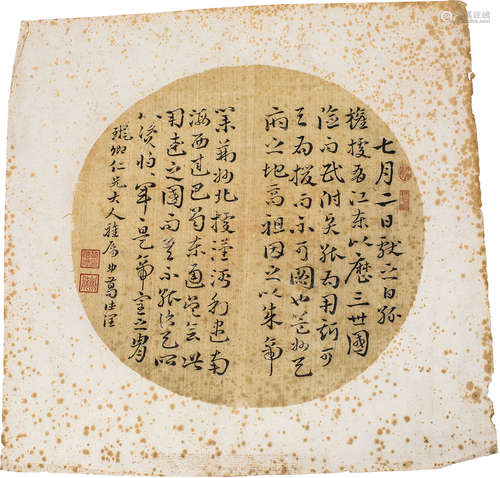 七月二日獻之白孫
權據有江東以歷三世國
險而民附賢能為用許可
以為援而不可圖也益州天
府之地高祖因之以成帝
業荊州北據漢沔利盡南
海西通巴蜀東連吳會此
用武之國而其不能守天所
以資將軍是帝室之冑
卿仁兄大人雅屬 弟葛